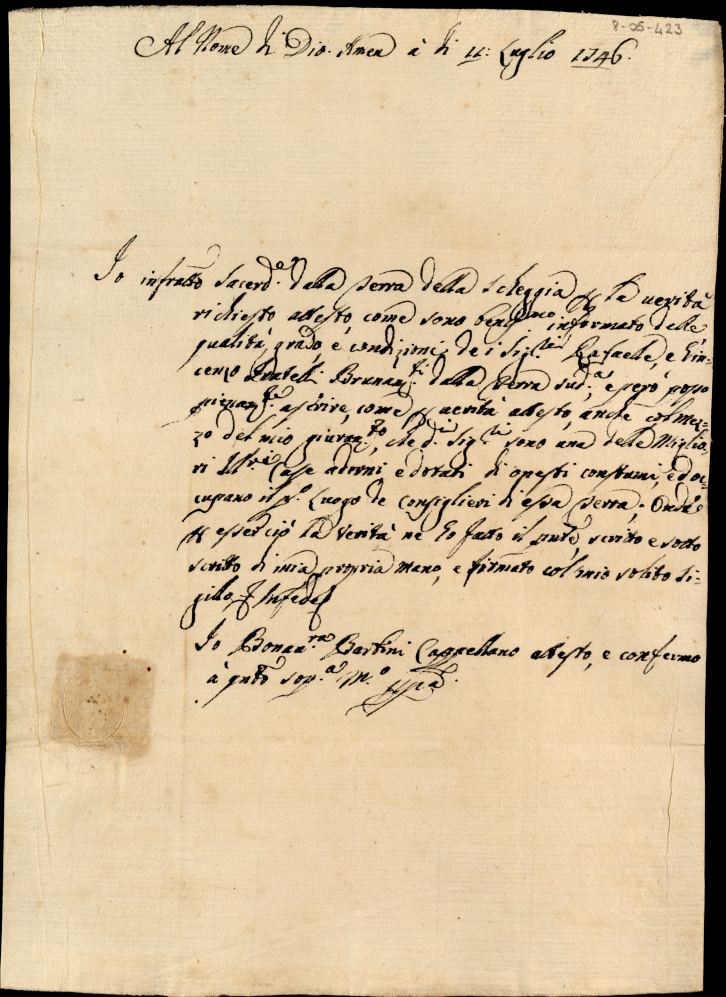 8-05-423
Al Nome di Dio. Amen à dì 11: Luglio 1746.
Io infratto Sacerd.e dalla Serra della Scheggia p la verità
richiesto attesto, come sono benissimo informato delle
qualità, grado, e condizioni de i Sig.ri Rafaelle, e Vin-
cenzo Fratelli Brunam.ti dalla Serra sud.a, e però posso
pienam.te asserire, come p verità attesto, anche col mez-
zo del mio giuram.to, che d.i Sig.ri sono una delle Miglio-
ri Ill.ri Case adorni e dotati di onesti costumi, ed oc-
cupano il p.o Luogo de Consiglieri di essa Serra; Onde
p esserciò la Verità ne ho fatto il pnte, scritto e sotto
scritto di mia propria mano, e firmato col mio solito Si-
gillo. In fede
Io Bonav.ra Bartini Cappellano attesto, e confermo
à qnto sop.a M.o pp.a